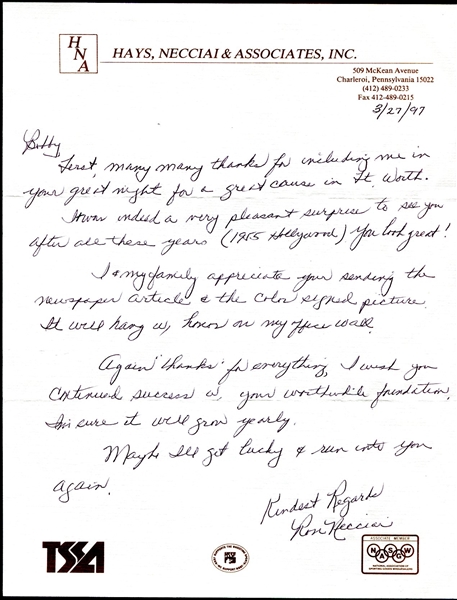 HNA
HAYS, NECCIAI & ASSOCIATES, INC.
509 McKean Avenue
Charleroi, Pennsylvania 15022
(412) 489-0233
Fax 412-489-0215
3/27/97
Bobby
First, many many thanks for including me in
your great night for a great cause in Ft. Worth.
It was indeed a very pleasant surprise to see you
after all these years (1955 Hollywood) You look great!
I & my family appreciate your sending the
newspaper article & the color signed picture.
It will hang w/ honor on my office wall.
Again "thanks" for everything, I wish you
continued success w/ your worthwhile foundation.
I'm sure it will grow yearly.
Maybe I'll get lucky & run into you
again.
Kindest Regards
Ron Necciai
TSSA
ASSOCIATE MEMBER
NASGW
NATIONAL ASSOCIATION OF
SPORTING GOODS WHOLESALERS